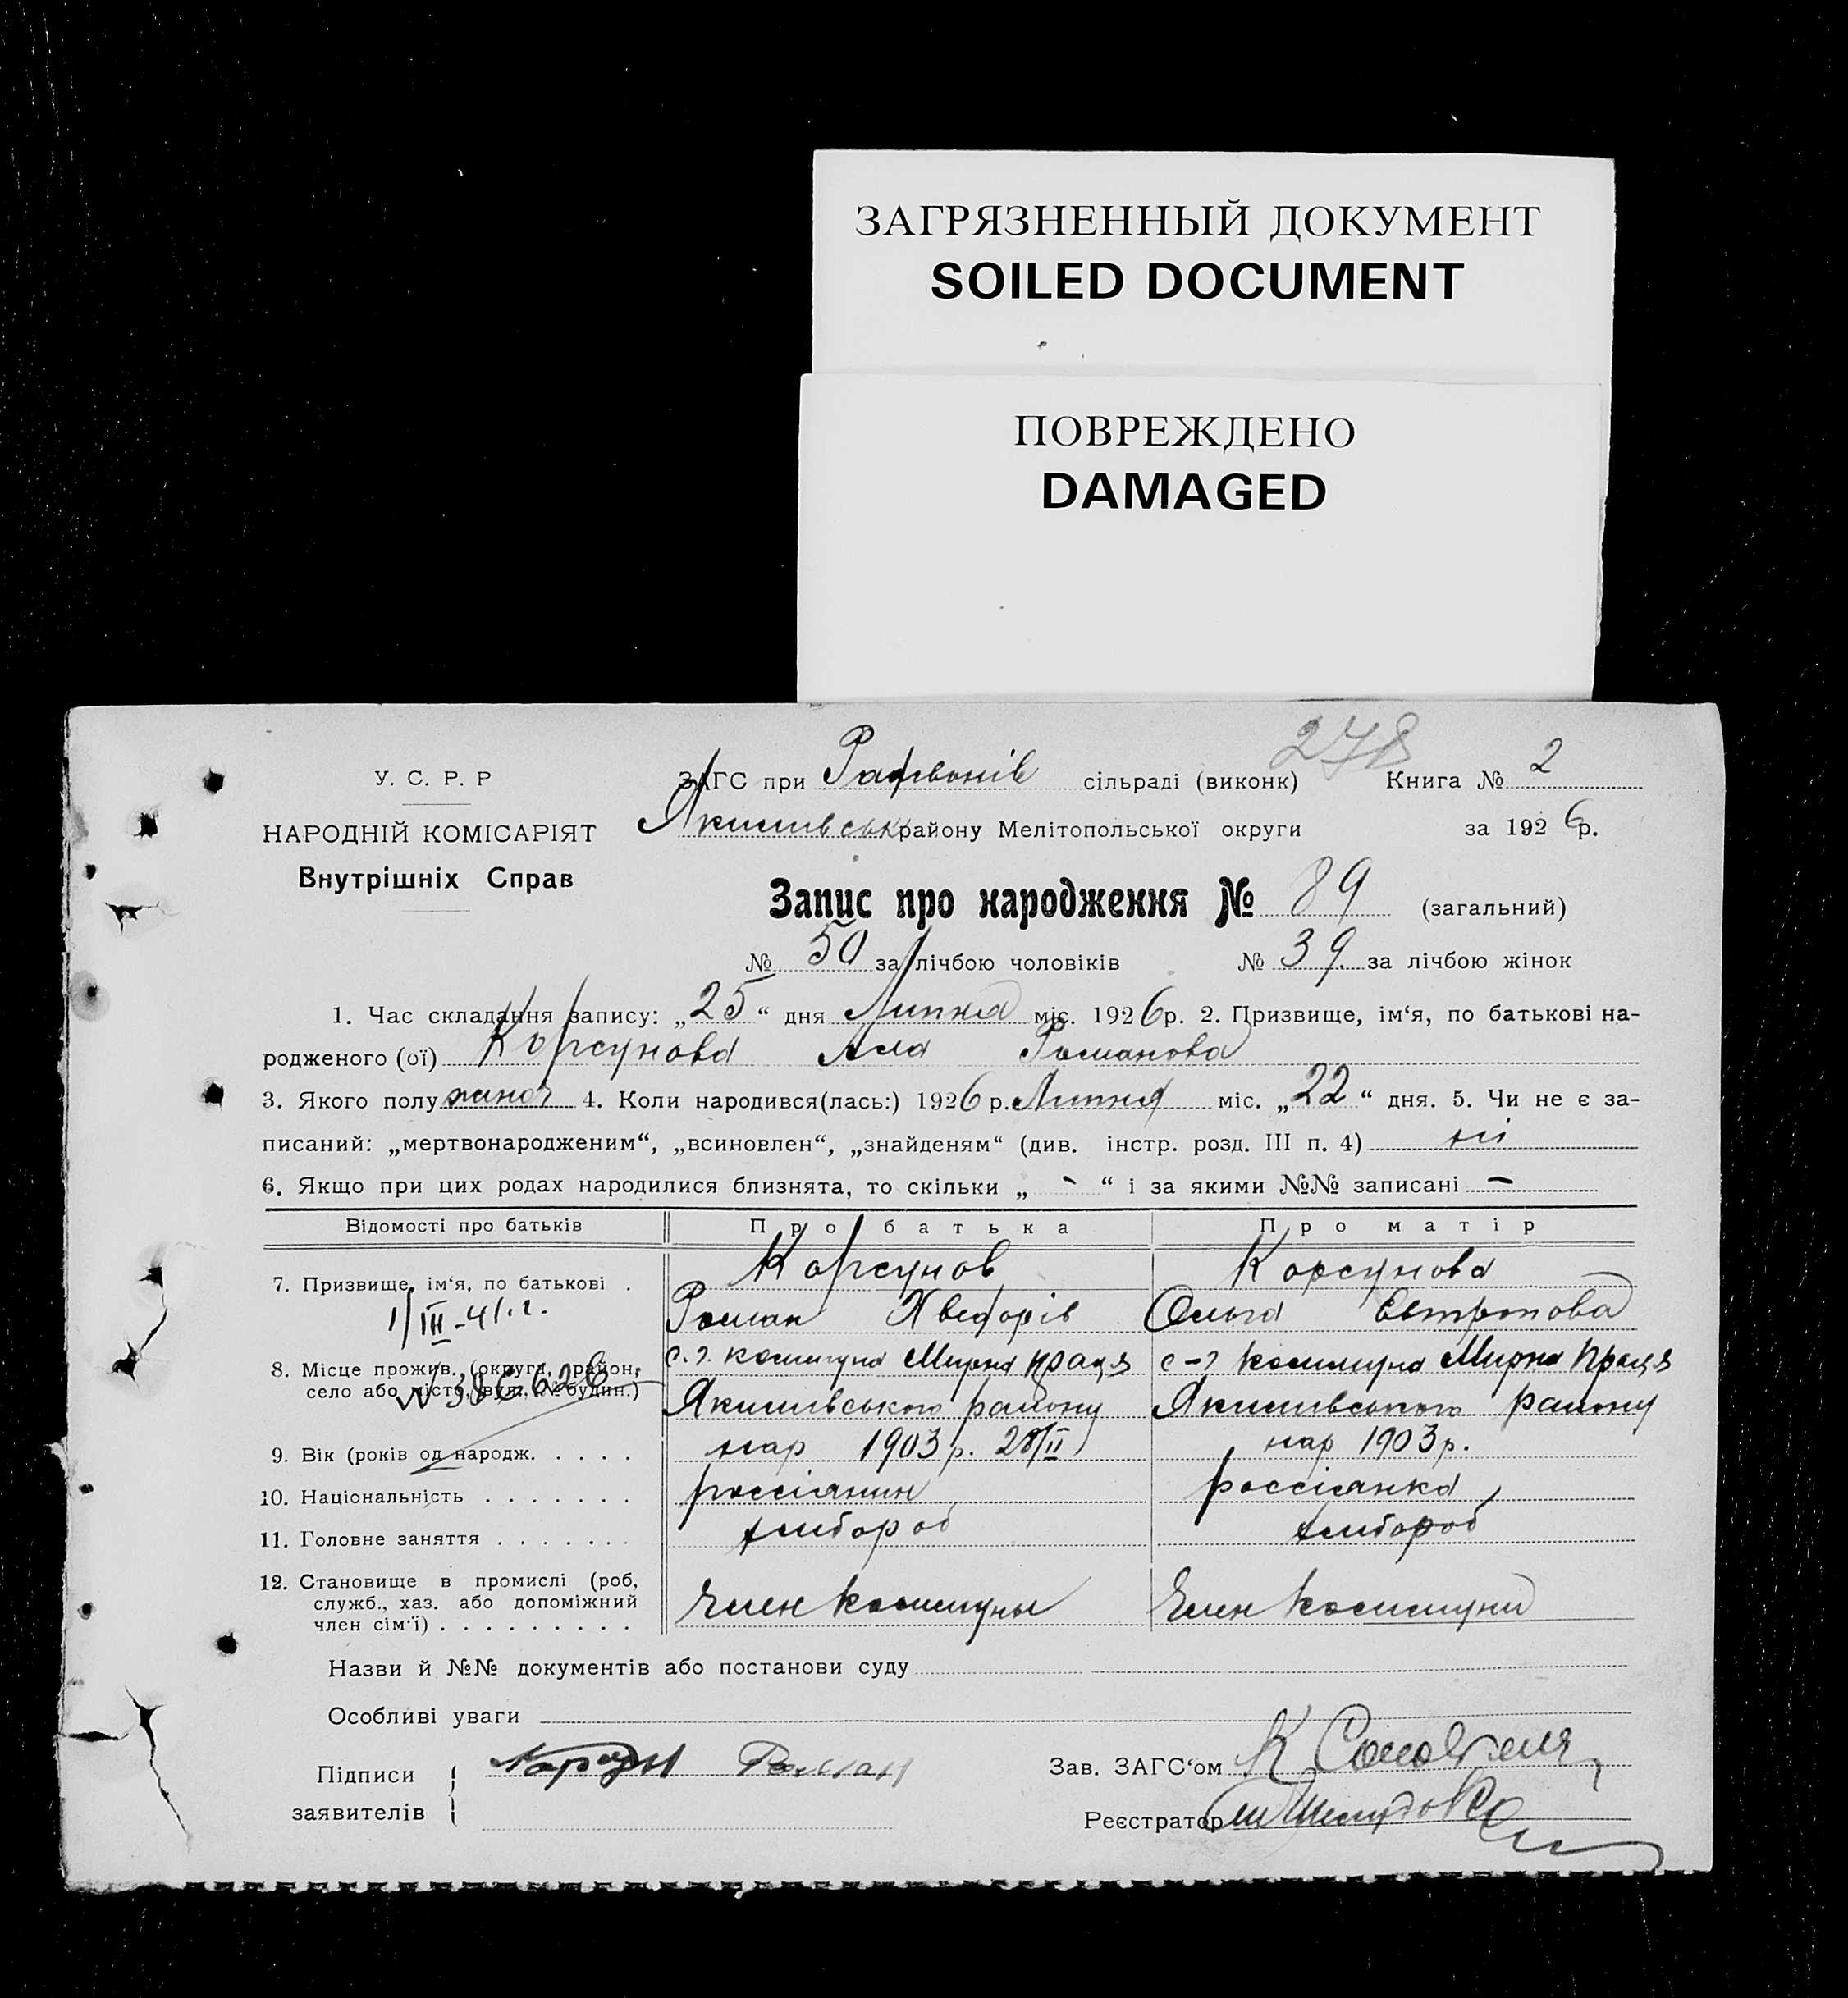 ЗАГРЯЗНЕННЫЙ ДОКУМЕНТ
SOILED DOCUMENT
ПОВРЕЖДЕНО
DAMAGED
278
У. С. Р. Р
НАРОДНІЙ КОМІСАРІЯТ
Внутрішніх Справ
ЗАГС при сільраді (виконк) Книга № 2
Якимівськ району Мелітопольської округи за 1926 р.
Запис про народження № 89 (загальний)
№ 50 за лічбою чоловіків № 39. за лічбою жінок
1. Час складання запису: „25“ дня Липня міс. 1926 р. 2. Призвище, ім‘я, по батькові на-
родженого (ої) Корсунова Ала Романова
3. Якого полу жиноч 4. Коли народився(лась:) 1926 р. Липня міс. „22“ дня. 5. Чи не є за-
писаний: „мертвонародженим“, „всиновлен“, „знайденям“ (див. інстр. розд. III п. 4) ні
6. Якщо при цих родах народилися близнята, то скільки „ - “ і за якими №№ записані —
Відомості про батьків Про батька Про матір
7. Призвище, ім‘я, по батькові . Корсунов Корсунова
Роман Хведорів Ольга Євтропова
1/III-41.г.
8. Місце прожив. (округа, район, с.г. комуна Мирна праця с-г комуна Мирна Праця
село або місто, вул. і № будин.) Якимівського району Якимівського району
9. Вік (років од народж. . . . . нар 1903 р. 28/II нар 1903 р.
10. Національність . . . . . . . россіянин россіянка
11. Головне заняття . . . . . . . хлібороб хлібороб
12. Становище в промислі (роб,
служб., хаз. або допоміжний Член коммуны Член коммуни
член сім‘ї) . . . . . . . . .
Назви й №№ документів або постанови суду
Особливі уваги
Підписи Роман Зав. ЗАГС‘ом К
заявителів
Реєстратор